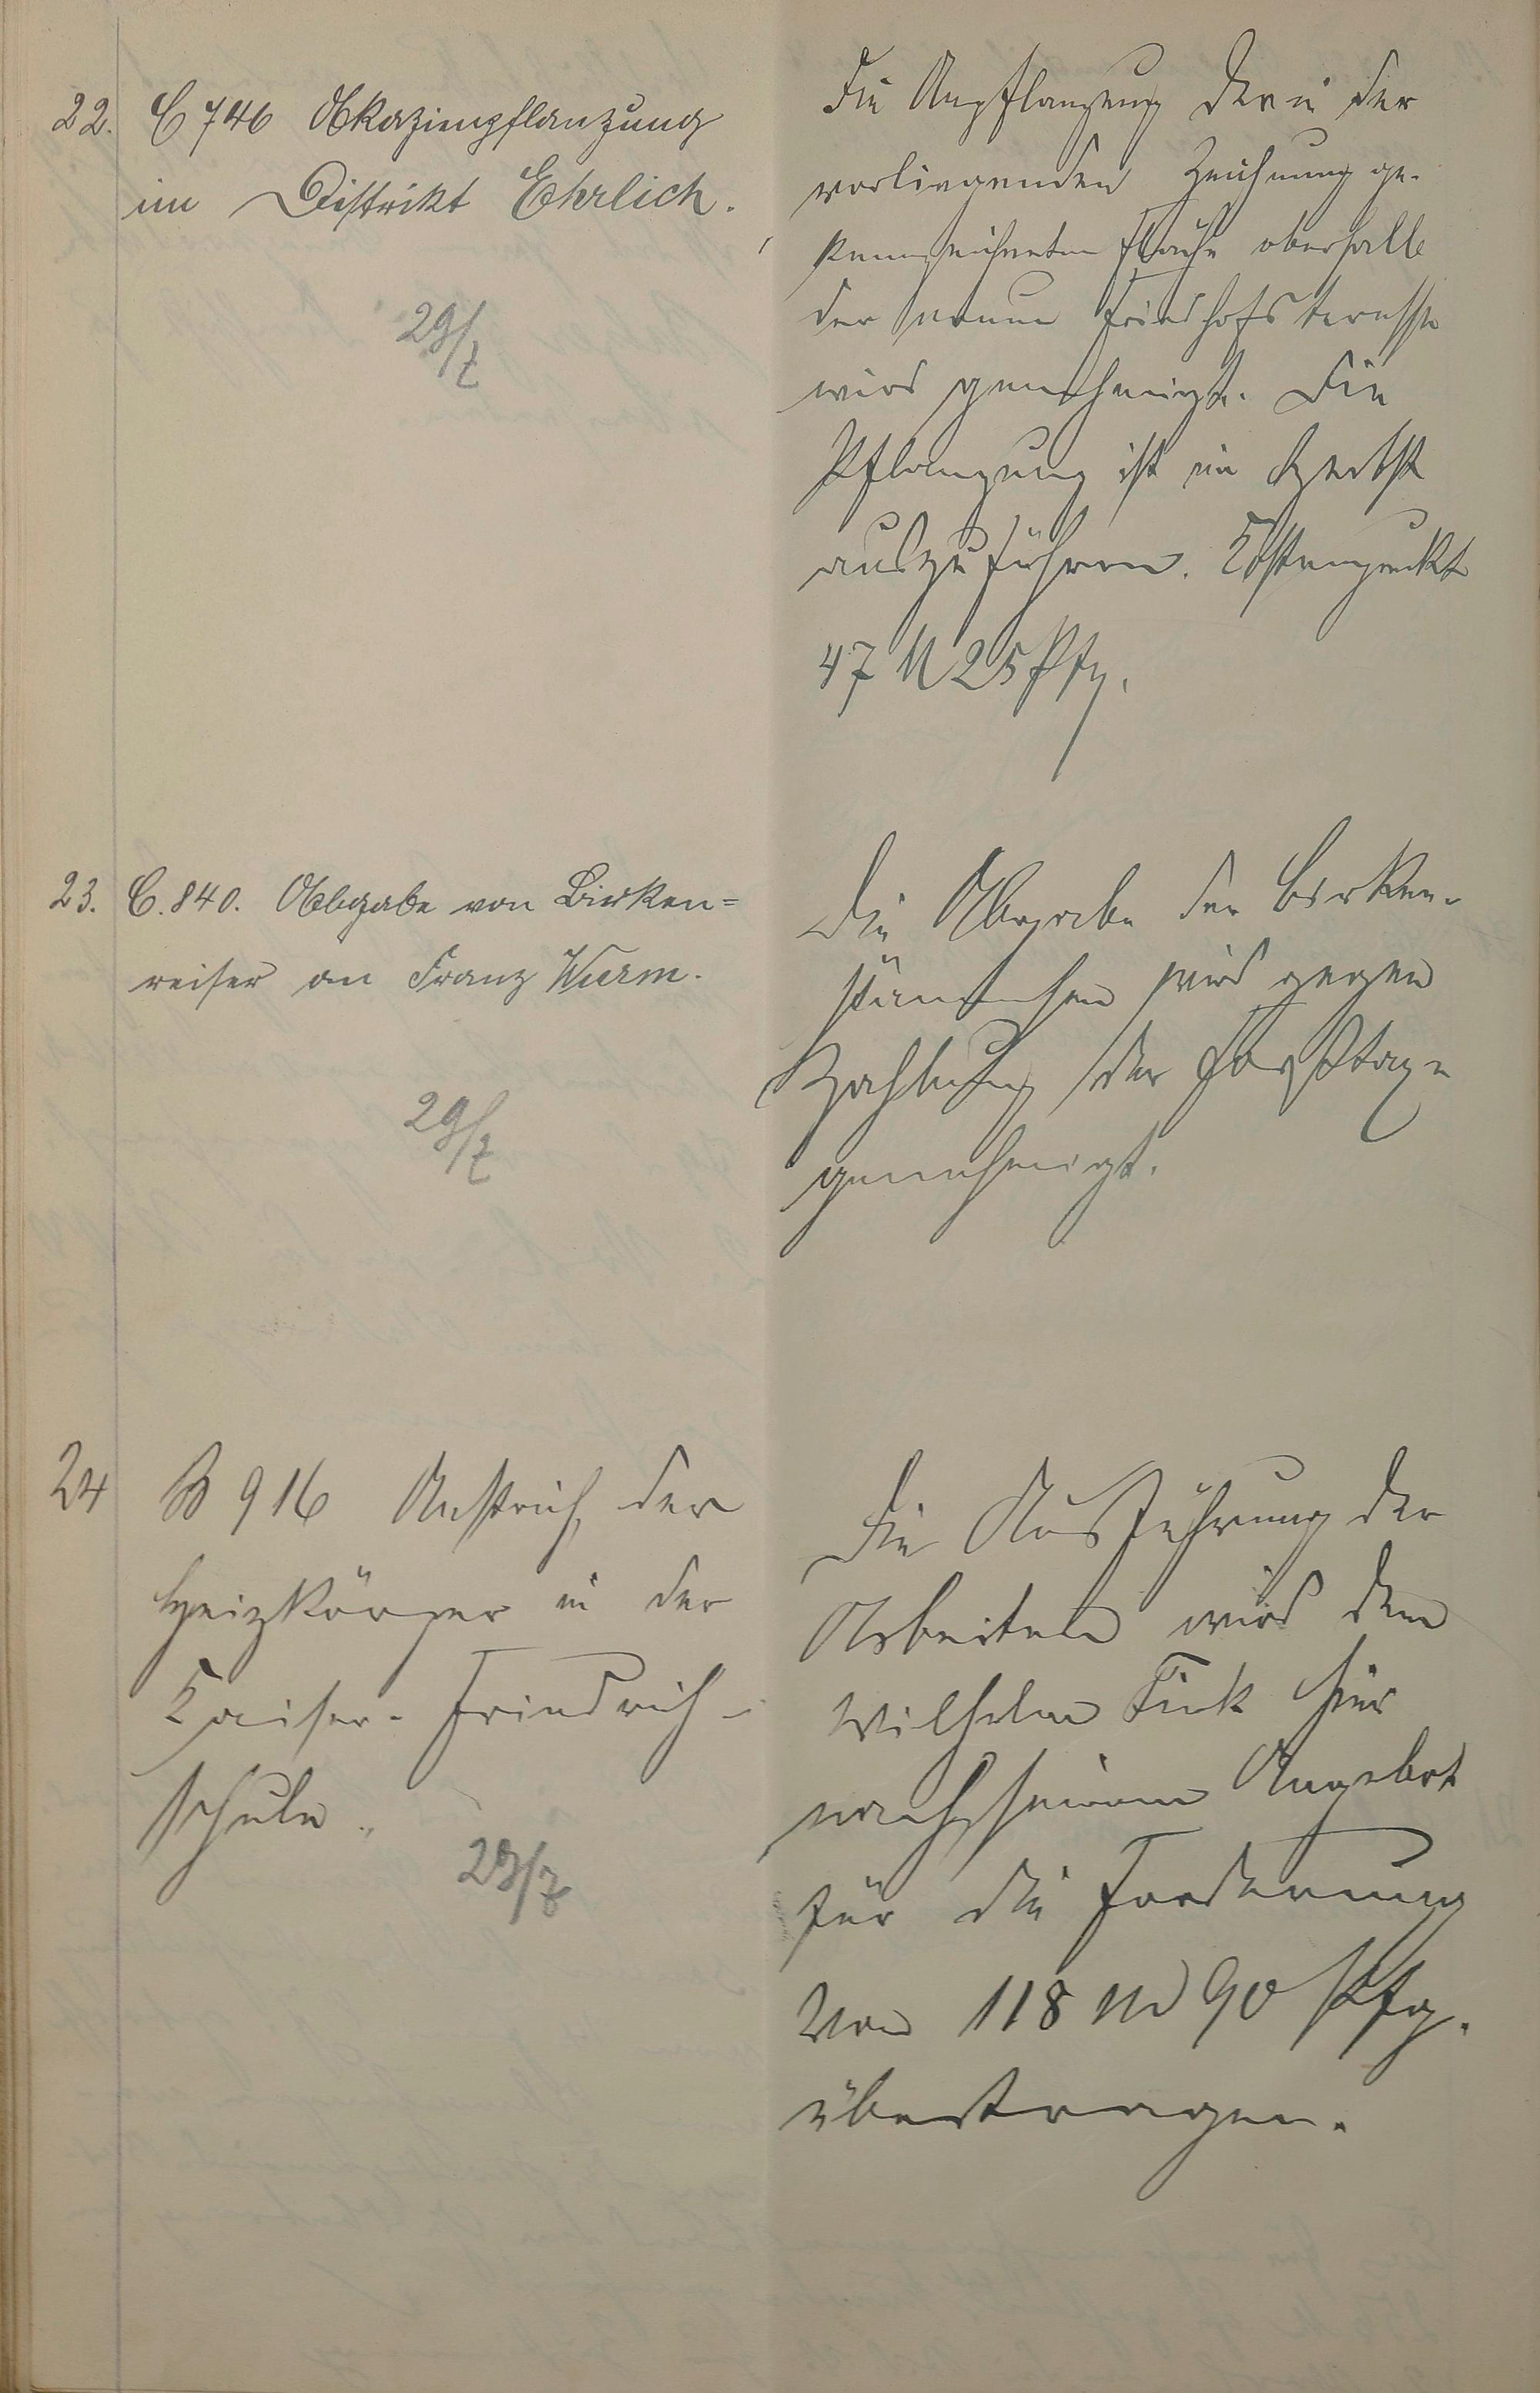 22. C 746 Akazienpflanzung
im Distrikt Ehrlich.
29/7
Die Anpflanzung der in der
vorliegenden Zeichnung ge-
kennzeichneten Fläche oberhalb
der neuen Friedhofsterasse
wird genehmigt. Die
Pflanzung ist im Herbst
auszuführen. Kostenpunkt
47 M 25 Pfg.
23. C. 840. Abgabe von Birken=
reiser an Franz Wurm.
29/7
Die Abgabe der Birken-
stämmchen wird gegen
Zahlung der Forsttaxe
genehmigt.
24 B 916 Anstrich der
Heizkörper in der
Kaiser-Friedrich-
schule.
29/7
Die Ausführung der
Arbeiten wird dem
Wilhelm Fink hier
nach seinem Angebot
für die Forderung
von 118 M 90 Pfg.
übertragen.